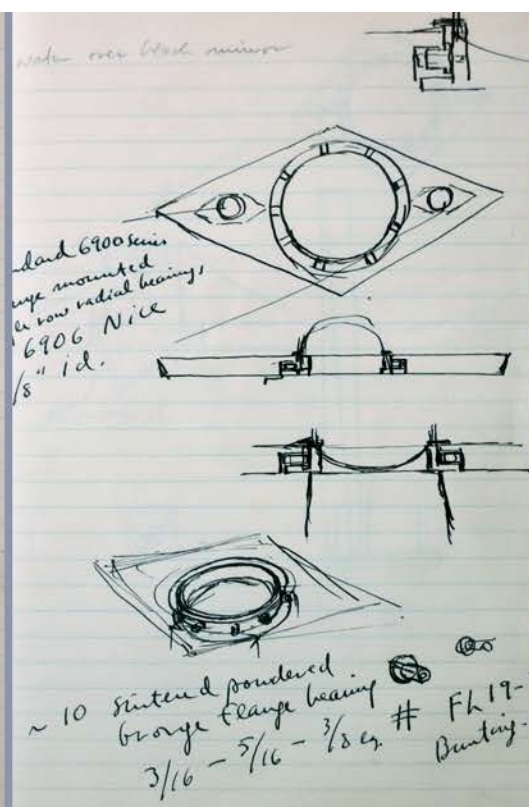 water over black mirror
ndard 6900 series
nge mounted
le row radial bearings
6906 Nice
/8" id.
~ 10 sintered powdered
bronze flange bearing
3/16 - 5/16 - 3/8 # FL 19-
Bunting.